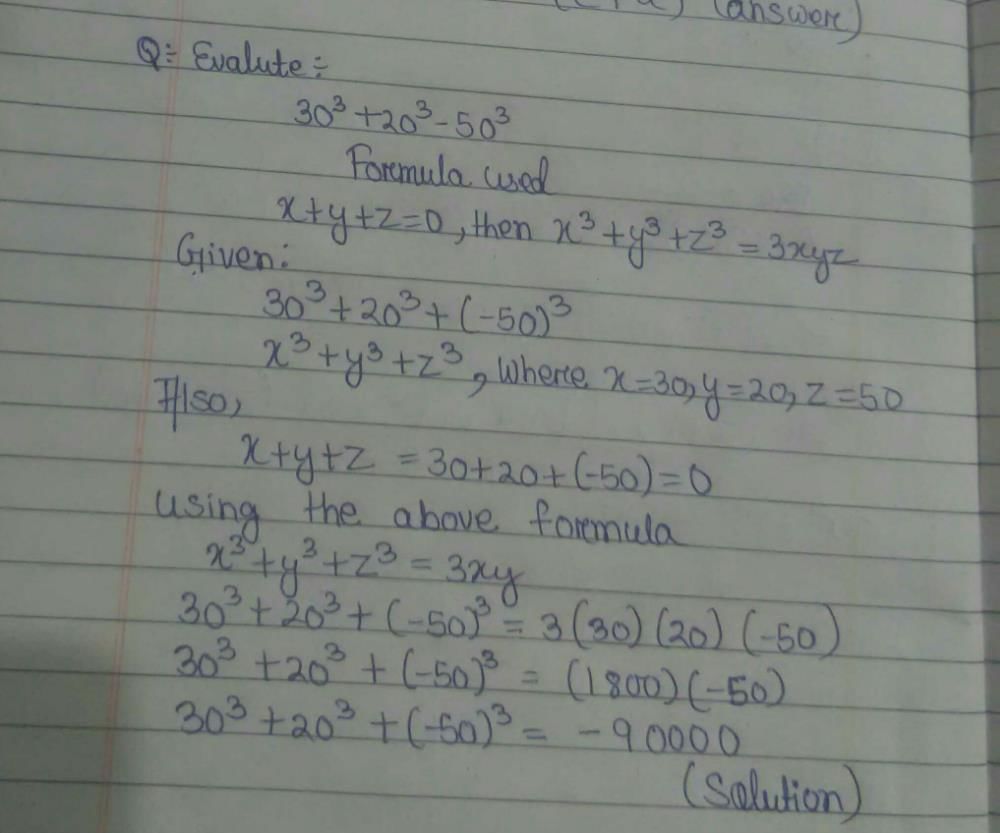 (answer)
Q÷ Evalute÷
30³+20³-50³
Formula used
x+y+z=0, then x³+y³+z³=3xyz
Given:
30³+20³+(-50)³
x³+y³+z³, where x=30, y=20, z=50
Also,
x+y+z =30+20+(-50)=0
using the above formula
x³+y³+z³=3xy
30³+20³+(-50)³=3(30)(20)(-50)
30³+20³+(-50)³=(1800)(-50)
30³+20³+(-50)³=-90000
(Solution)